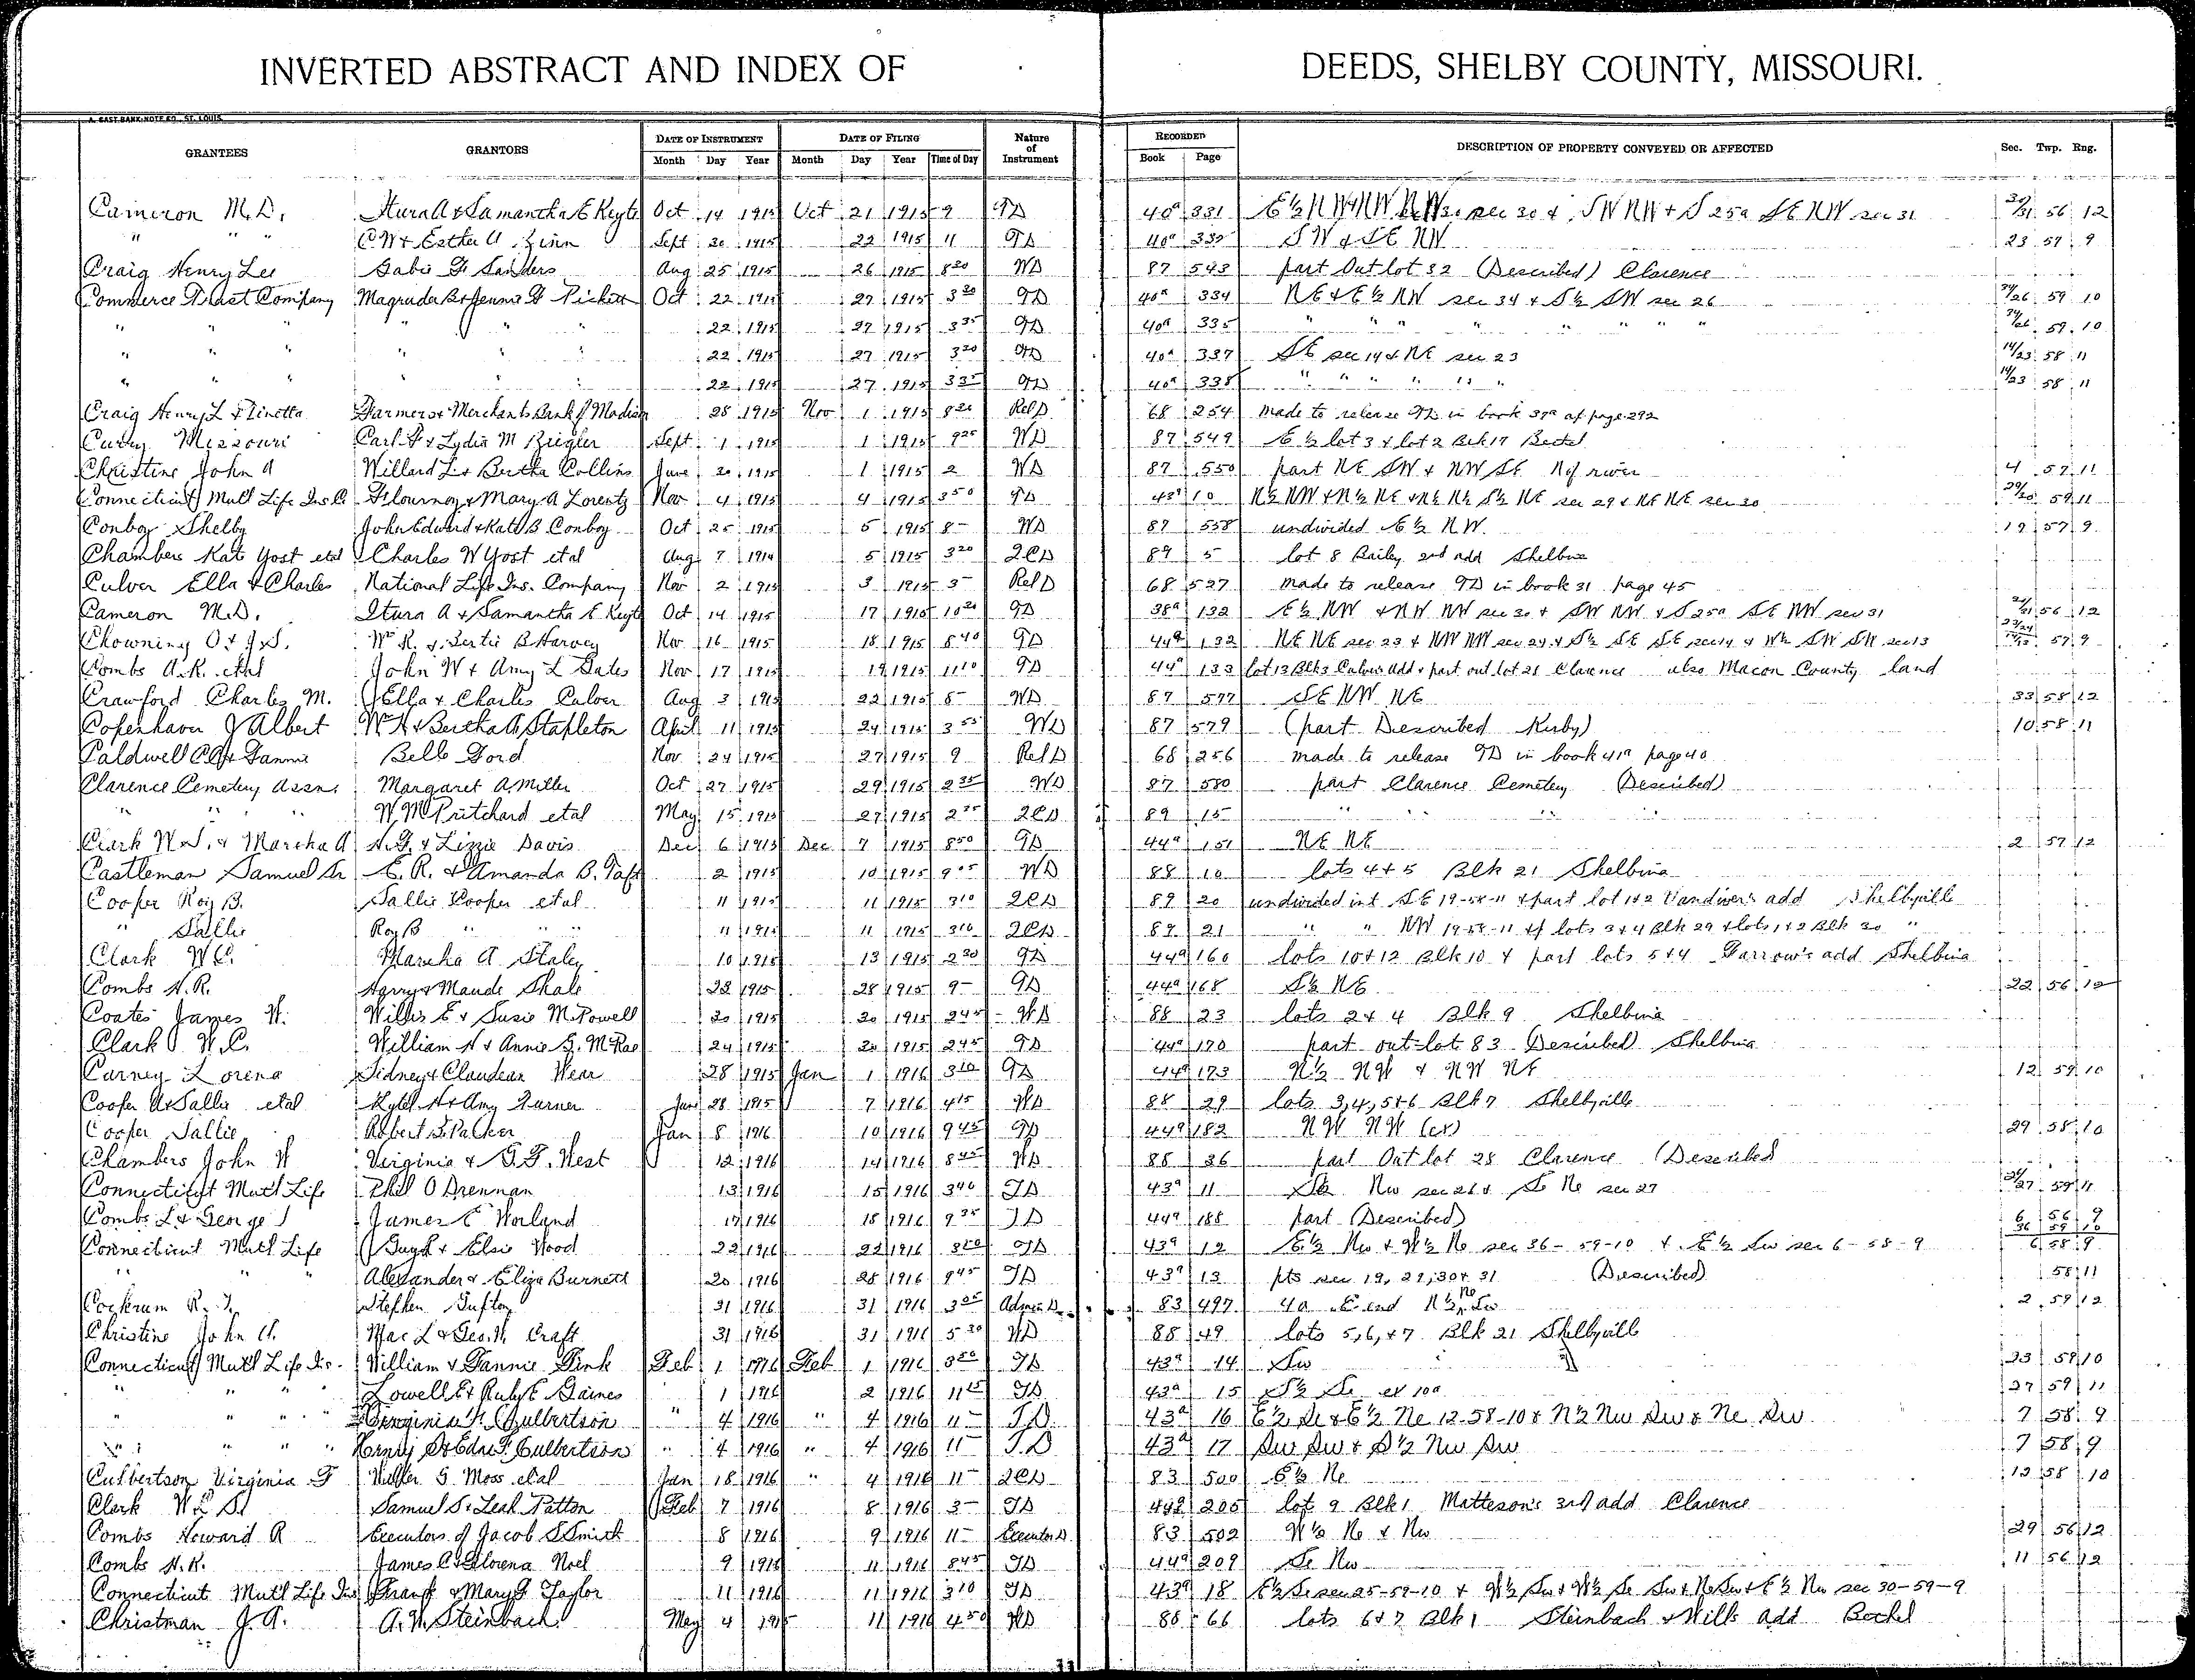 INVERTED ABSTRACT AND INDEX OF DEEDS, SHELBY COUNTY, MISSOURI.
A. GAST BANK NOTE CO., ST. LOUIS
GRANTEES GRANTORS DATE OF INSTRUMENT DATE OF FILING Nature of Instrument RECORDED DESCRIPTION OF PROPERTY CONVEYED OR AFFECTED Sec. Twp. Rng.
Month Day Year Month Day Year Time of Day Book Page
Cameron M.D. Itura A & Samantha E Keyte Oct 14 1915 Oct 21 1915 9 TD 40a 331 E½ NW & NW NW sec 30 & SW NW & S 25a SE NW sec 31 30/31 56 12
" " " C.W & Esther A Zinn Sept 20 1915 22 1915 11 TD 40a 332 SW & SE NW 23 57 9
Craig Henry Lee Gabie F Sanders Aug 25 1915 26 1915 8 30 WD 87 543 part Out lot 32 (Described) Clarence
Commerce Trust Company Magruder B & Jennie H Pickett Oct 22 1915 27 1915 3 30 TD 40a 334 NE & E½ NW sec 34 & S½ SW sec 26 34/26 59 10
" " " " " " 22 1915 27 1915 3 35 TD 40a 335 " " " " " " " 34/26 59 10
" " " " " " 22 1915 27 1915 3 30 TD 40a 337 SE sec 14 & NE sec 23 14/23 58 11
" " " " " " 22 1915 27 1915 3 35 TD 40a 338 " " " " " " 14/23 58 11
Craig Henry L & Zinetta Farmers & Merchants Bank of Madison 28 1915 Nov 1 1915 8 30 Rel D 68 254 made to release TD in book 39a at page 292
Curry Missouri Carl F & Lydia M Riegler Sept 1 1915 1 1915 9 25 WD 87 549 E½ lot 3 & lot 2 Blk 17 Bethel
Christine John A Willard L & Bertha Collins June 20 1915 1 1915 2 WD 87 550 part NE SW & NW SE N of river 4 57 11
Connecticut Mutl Life Ins Co Flournoy & Mary A Lorentz Nov 4 1915 4 1915 3 50 TD 43a 10 N½ NW & N½ NE & NE NE S½ NE sec 29 & NE NE sec 30 29/30 59 11
Conboy Shelby John Edward & Kate B Conboy Oct 25 1915 5 1915 8- WD 87 558 undivided E½ NW. 19 57 9
Chambers Kate Yost etal Charles W Yost etal Aug 7 1914 5 1915 3 20 2CD 89 5 lot 8 Bailey 2nd add Shelbina
Culver Ella & Charles National Life Ins. Company Nov 2 1915 3 1915 3- Rel D 68 527 made to release TD in book 31 page 45
Cameron M.D. Itura A & Samantha E Keyte Oct 14 1915 17 1915 10 20 TD 38a 132 E½ NW & NW NW sec 30 & SW NW & S 25a SE NW sec 31 56 12
Chowning O & J.S. Wm R. & Bertie B Harvey Nov 16 1915 18 1915 8 40 TD 44a 132 NE NE sec 23 & NW NW sec 24 & S½ SE SE sec 14 & W½ SW SW sec 13 57 9
Combs A.R. etal John W & Amy L Gates Nov 17 1915 19 1915 11 10 TD 44a 133 lot 13 Blk 3 Culvers add & part out lot 21 Clarence also Macon County land
Crawford Charles M. Ella & Charles Culver Aug 3 1915 22 1915 8- WD 87 577 SE NW NE 33 58 12
Copenhaver J Albert Wm H & Bertha A Stapleton April 11 1915 24 1915 3 55 WD 87 579 (part Described Kirby) 10 58 11
Caldwell C A & Fannie Belle Ford Nov 24 1915 27 1915 9 Rel D 68 256 made to release TD in book 41a page 40
Clarence Cemetery Assn. Margaret A Miller Oct 27 1915 29 1915 2 35 WD 87 580 part Clarence Cemetery (Described)
" " " W.M. Pritchard etal May 15 1915 27 1915 2 35 2CD 89 15 " " " "
Clark W.S. & Martha A H.F. & Lizzie Davis Dec 6 1915 Dec 7 1915 8 50 TD 44a 151 NE NE 2 57 12
Castleman Samuel Sr E. R. & Amanda B. Taft 2 1915 10 1915 9 05 WD 88 10 lots 4 & 5 Blk 21 Shelbina
Cooper Roy B. Sallie Cooper etal 11 1915 11 1915 3 10 2CD 89 20 undivided int SE 19-58-11 & part lot 1 & 2 Vandivers add Shelbyville
" Sallie Roy B " " " 11 1915 11 1915 3 10 2CD 89 21 " " NW 19-58-11 & lots 3 & 4 Blk 29 & lots 1 & 2 Blk 30 "
Clark W.C. Martha A. Staley 10 1915 13 1915 2 30 TD 44a 160 lots 10 & 12 Blk 10 & part lots 5 & 4 Farrow's add Shelbina
Combs H.R. Harry & Maude Shale 28 1915 28 1915 9- TD 44a 168 S½ NE 22 56 12
Coates James W. Willis E & Susie M. Powell 20 1915 20 1915 2 45 WD 88 23 lots 2 & 4 Blk 9 Shelbina
Clark W.C. William H & Annie G. McRae 24 1915 20 1915 2 45 TD 44a 170 part out-lot 83 (Described) Shelbina
Carney Lorena Sidney & Claudean Wear 28 1915 Jan 1 1916 3 10 TD 44a 173 N½ NW & NW NE 12 59 10
Cooper A & Sallie etal Kyle H & Amy Turner June 28 1915 7 1916 4 15 WD 88 29 lots 3, 4, 5 & 6 Blk 7 Shelbyville
Cooper Sallie Robert S Parker Jan 8 1916 10 1916 9 45 TD 44a 182 NW NW (ex) 29 58 10
Chambers John W Virginia & G.F. West 12 1916 14 1916 8 45 WD 88 36 part Out lot 28 Clarence (Described)
Connecticut Mutl Life Phil O Drennan 13 1916 15 1916 3 40 TD 43a 11 Nw sec 26 & Se Ne sec 27 26/27 59 11
Combs L & George James C Worland 17 1916 18 1916 9 35 TD 44a 188 part (Described) 6 56 9
Connecticut Mutl Life Guy & Elsie Wood 22 1916 22 1916 TD 43a 12 E½ Nw & W½ Ne sec 36-59-10 & E½ Sw sec 6-58-9 36 59 10 6 58 9
" " " Alexander & Eliza Burnett 20 1916 28 1916 9 45 TD 43a 13 pts sec 19, 29, 30 & 31 (Described) 58 11
Cockrum R. T. Stephen Gupton 31 1916 31 1916 3 05 Admin D. 83 497 4a E end N½ Ne Sw 2 59 12
Christine John A. Mac L & Geo. W. Craft 31 1916 31 1916 5 30 WD 88 49 lots 5, 6, & 7 Blk 21 Shelbyville
Connecticut Mutl Life Ins. William & Fannie Fink Feb 1 1916 Feb 1 1916 3 50 TD 43a 14 Sw 33 59 10
" " " Lowell E & Ruby E Gaines 1 1916 2 1916 11 15 TD 43a 15 S½ Se ex 10a 27 59 11
" " " " Virginia F. Culbertson " 4 1916 " 4 1916 11- T.D. 43a 16 E½ Se & E½ Ne 12-58-10 & N½ Nw Sw & Ne Sw 7 58 9
" " " " Henry S & Edna F. Culbertson " 4 1916 " 4 1916 11- T.D 43a 17 Sw Sw & S½ Nw Sw 7 58 9
Culbertson Virginia F Walter G. Moss etal Jan 18 1916 " 4 1916 11- 2CD 83 500 E½ Ne 12 58 10
Clark Samuel S & Leah Patton Feb 7 1916 8 1916 3- TD 44a 205 lot 9 Blk 1 Matteson's 3rd add Clarence
Combs Howard R Executors of Jacob S Smith 8 1916 9 1916 11- Executor D 83 502 W½ Ne & Nw 29 56 12
Combs H.R. James C & Florena Noel 9 1916 11 1916 8 45 TD 44a 209 Se Nw 11 56 12
Connecticut Mutl Life Ins Frank & Mary J Taylor 11 1916 11 1916 3 10 TD 43a 18 E½ Se sec 25-59-10 & W½ Sw & W½ Se Sw & Ne Sw & E½ Nw sec 30-59-9
Christman J.A. A. W. Steinbach May 4 1915 11 1916 4 50 WD 88 66 lots 6 & 7 Blk 1 Steinbach & Mills add Bethel
11